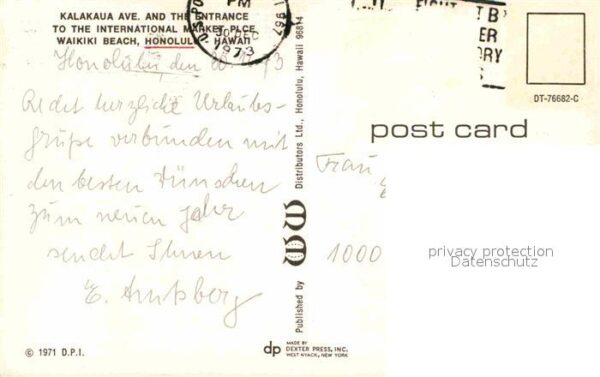 KALAKAUA AVE. AND THE ENTRANCE
TO THE INTERNATIONAL MARKET PLCE
WAIKIKI BEACH, HONOLULU, HAWAII
PM
DEC
1973
Honolulu, den
herzliche Urlaubs-
grüße verbunden mit
den besten Wünschen
zum neuen Jahr
sendet Ihnen
© 1971 D.P.I.
Published by
Distributors Ltd., Honolulu, Hawaii 96814
dp
MADE BY
DEXTER PRESS, INC.
WEST NYACK, NEW YORK
DT-76682-C
post card
Frau
1000
privacy protection
Datenschutz